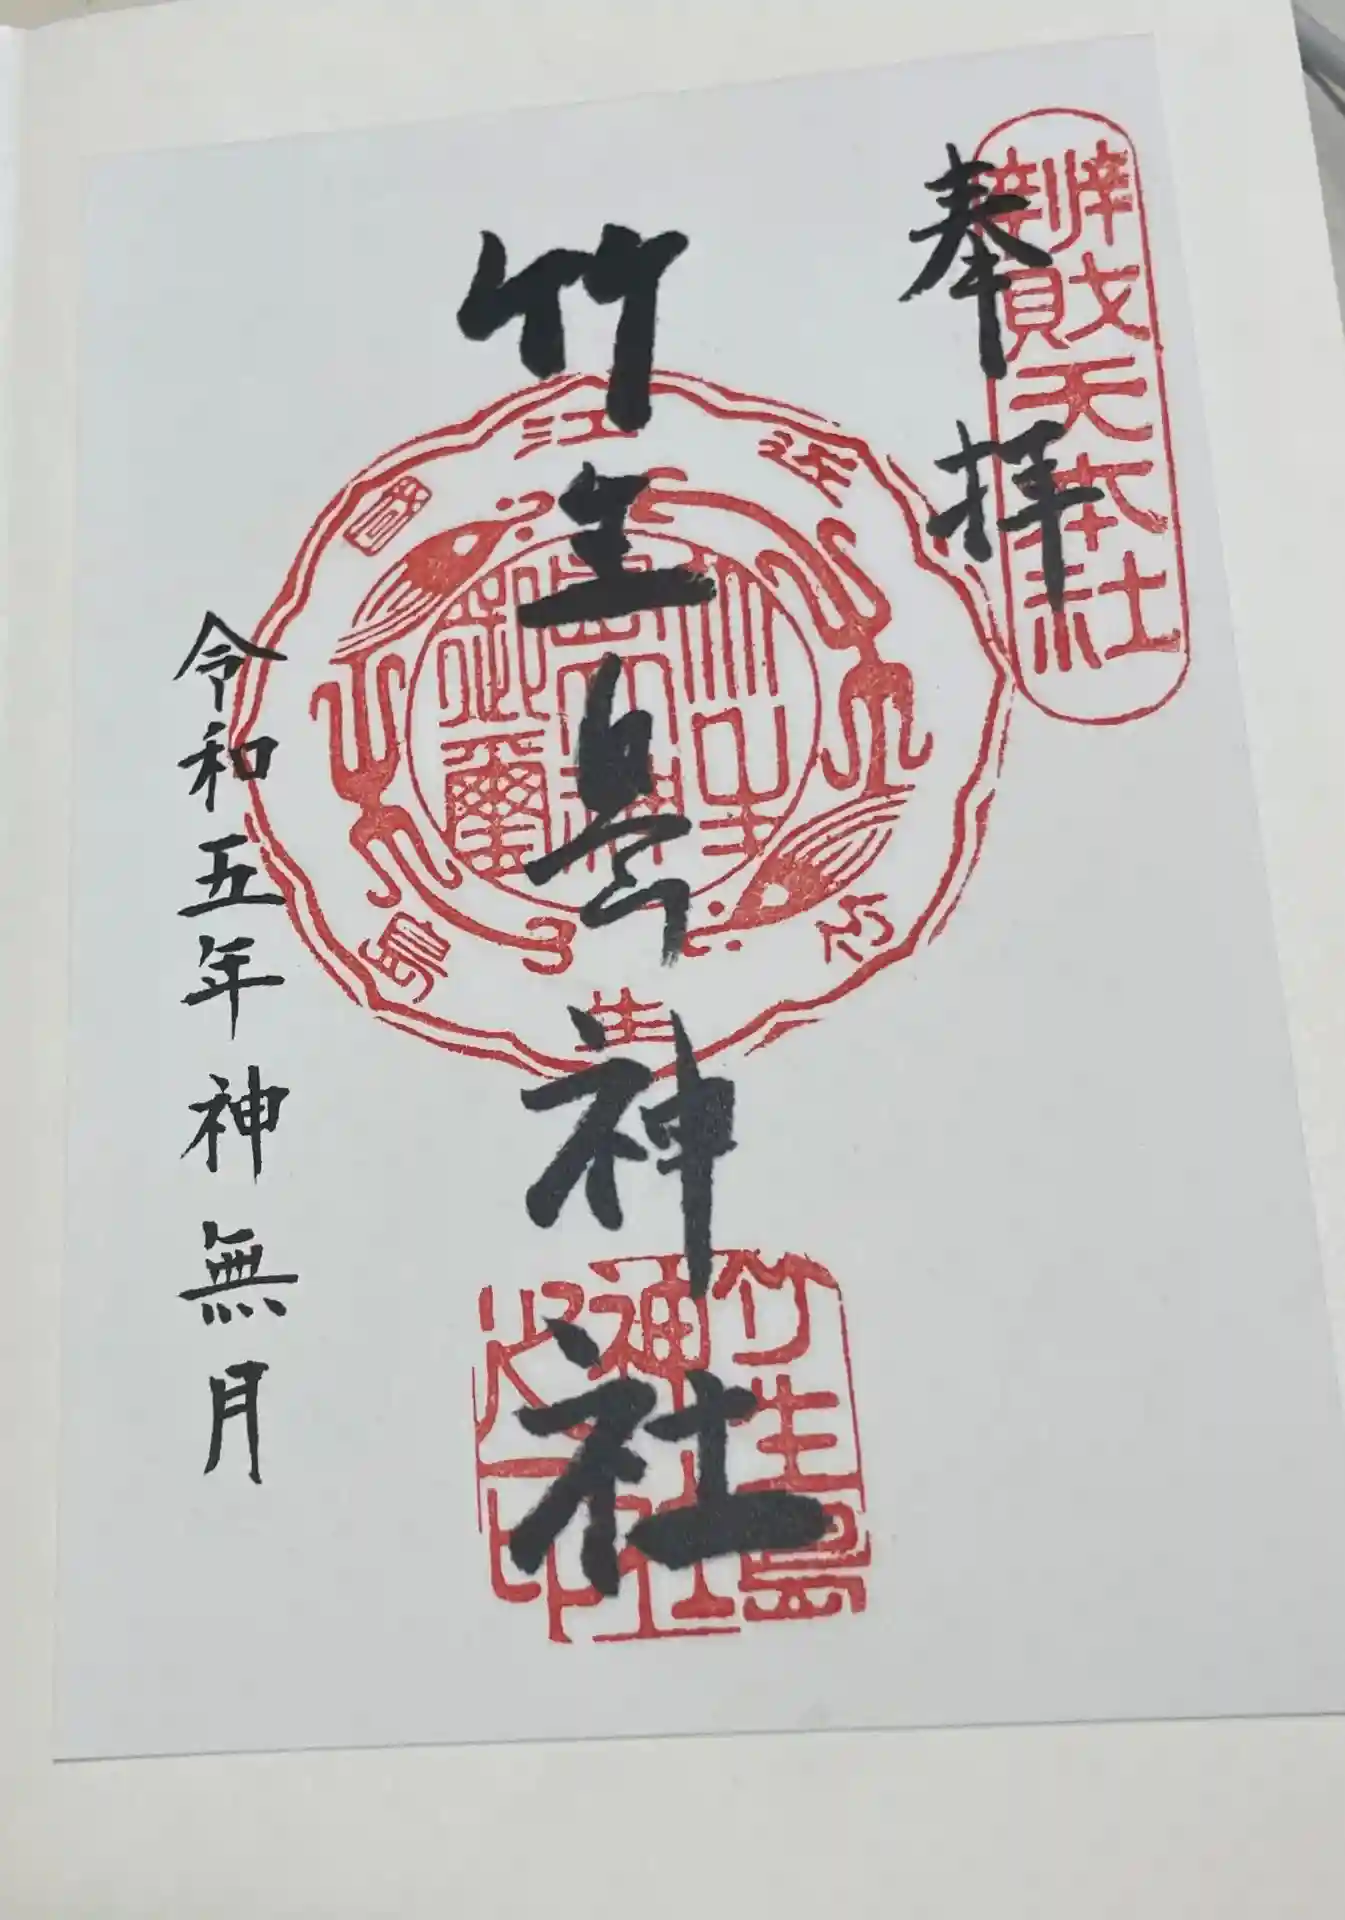 奉拝
辨財天本社
竹生島神社
近江國
竹生島
竹生島神社之印
令和五年神無月